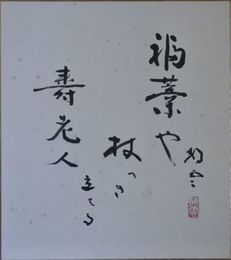 福藁や
杖つき立てる
寿老人